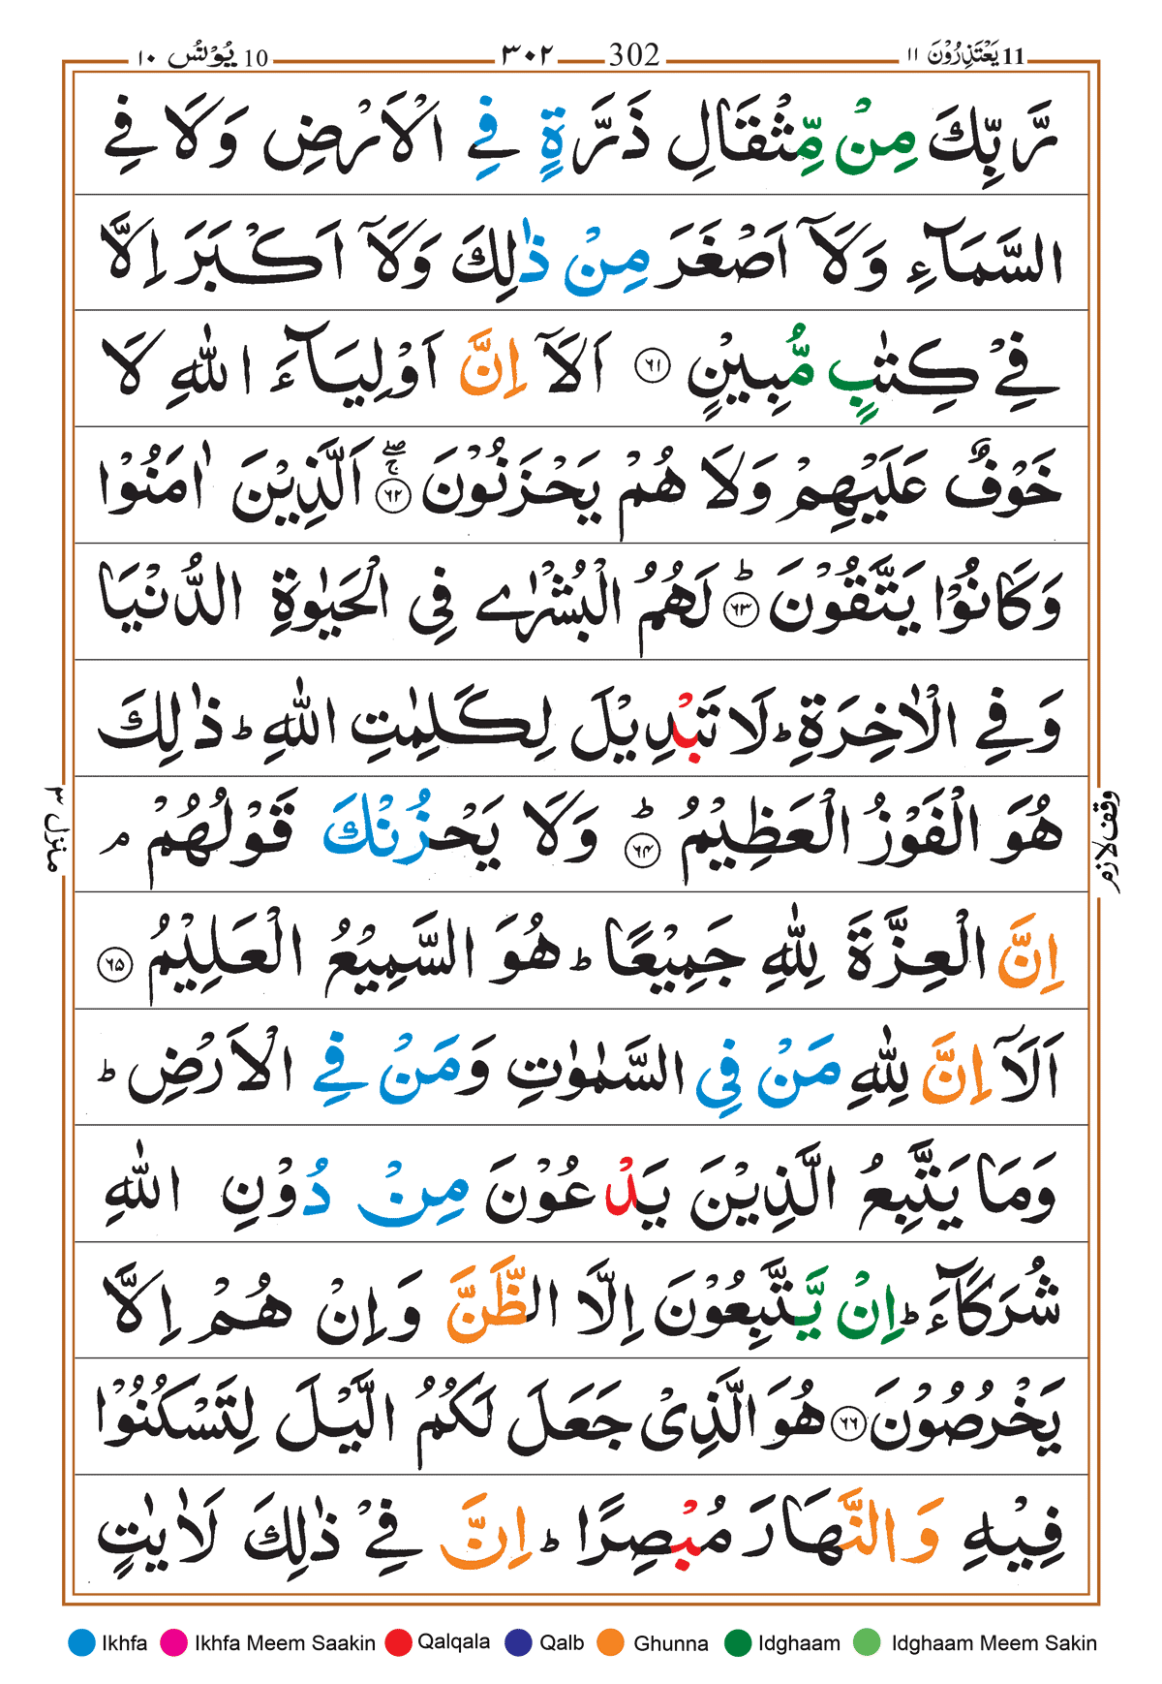 11 يَعْتَذِرُوْنَ ١١ 302 ٣٠٢ 10 يُوْنُسُ ١٠
رَّبِّكَ مِنْ مِّثْقَالِ ذَرَّةٍ فِي الْاَرْضِ وَلَا فِي
السَّمَآءِ وَلَاۤ اَصْغَرَ مِنْ ذٰلِكَ وَلَاۤ اَكْبَرَ اِلَّا
فِيْ كِتٰبٍ مُّبِيْنٍ ﴿٦١﴾ اَلَاۤ اِنَّ اَوْلِيَآءَ اللّٰهِ لَا
خَوْفٌ عَلَيْهِمْ وَلَا هُمْ يَحْزَنُوْنَ ﴿٦٢﴾ۖۚ اَلَّذِيْنَ اٰمَنُوْا
وَكَانُوْا يَتَّقُوْنَ ﴿٦٣﴾ؕ لَهُمُ الْبُشْرٰى فِي الْحَيٰوةِ الدُّنْيَا
وَفِي الْاٰخِرَةِ ؕ لَا تَبْدِيْلَ لِكَلِمٰتِ اللّٰهِ ؕ ذٰلِكَ
هُوَ الْفَوْزُ الْعَظِيْمُ ﴿٦٤﴾ؕ وَلَا يَحْزُنْكَ قَوْلُهُمْ ۘ
اِنَّ الْعِزَّةَ لِلّٰهِ جَمِيْعًا ؕ هُوَ السَّمِيْعُ الْعَلِيْمُ ﴿٦٥﴾
اَلَاۤ اِنَّ لِلّٰهِ مَنْ فِي السَّمٰوٰتِ وَمَنْ فِي الْاَرْضِ ؕ
وَمَا يَتَّبِعُ الَّذِيْنَ يَدْعُوْنَ مِنْ دُوْنِ اللّٰهِ
شُرَكَآءَ ؕ اِنْ يَّتَّبِعُوْنَ اِلَّا الظَّنَّ وَاِنْ هُمْ اِلَّا
يَخْرُصُوْنَ ﴿٦٦﴾ هُوَ الَّذِيْ جَعَلَ لَكُمُ الَّيْلَ لِتَسْكُنُوْا
فِيْهِ وَالنَّهَارَ مُبْصِرًا ؕ اِنَّ فِيْ ذٰلِكَ لَاٰيٰتٍ
وقف لازم
منزل ٣
Ikhfa Ikhfa Meem Saakin Qalqala Qalb Ghunna Idghaam Idghaam Meem Sakin